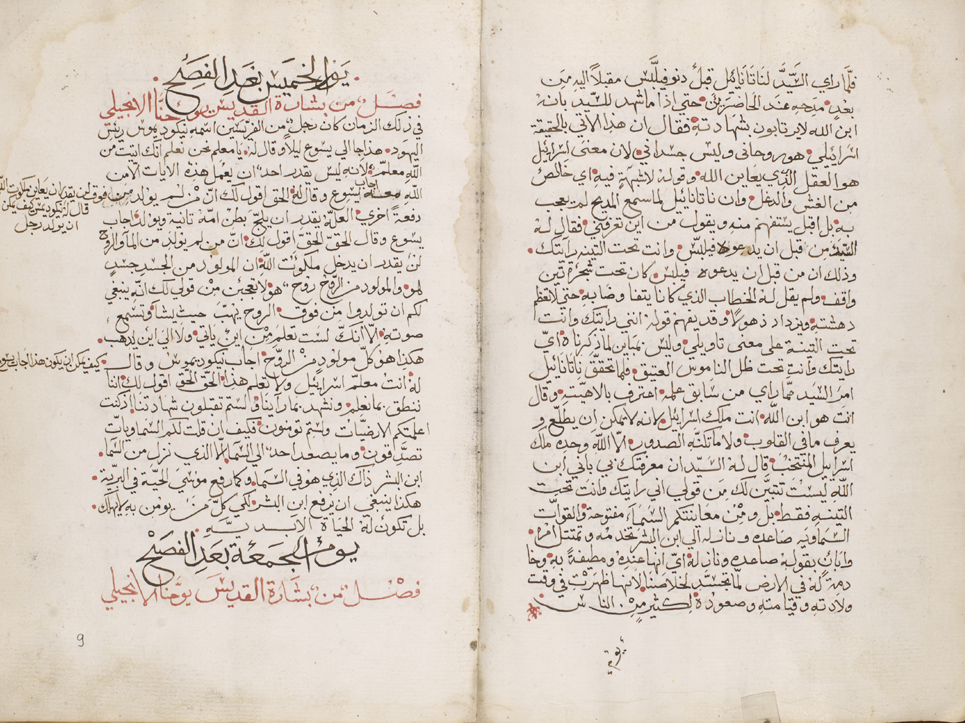 فلما راي السيد لناتانائيل قبل دنو فيلبس مقبلاً اليه من
بعد مدحه عند الحاضرين حتى اذا ما شهد للسيد بانه
ابن الله لا يرتابون شهادته فقال ان هذا الاتي بالحقيقة
اسرائيلي هو روحاني وليس جسداني لان معنى اسرائيل
هو العقل الذي يعاين الله وقوله لا شبهة فيه اي خالص
من الغش والدغل وان ناتانائيل لما سمع المديح لم يعجب
به بل اقبل يستفهم منه ويقول من اين تعرفني فقال له
السيد من قبل ان يدعوك فيلبس وانت تحت التينه رايتك
وذلك ان من قبل ان يدعوه فيلبس كان تحت شجرة تين
واقف ولم يقل له الخطاب الذي كانا يتفاوضا به حتى لا تعظم
دهشته ويزداد ذهولا وقد يفهم قوله انني رايتك وانت
تحت التينة على معنى تاويلي وليس بمباين لما ذكرناه اي
رايتك وانت تحت ظل الناموس العتيق فلما تحقق ناتانائيل
امر السيد مما راي من سابق علمه اعترف بالاهيته وقال
انت هو ابن الله انت ملك اسرائيل لانه لا يمكن ان يطلع و
يعرف ما في القلوب ولا ما تكنه الصدور الا الله وحده ملك
اسراييل المنتخب قال له السيد ان معرفتك بي بأني ابن
الله ليست تتبين لك من قولي اني رايتك وانت تحت
التينه فقط بل ومن معاينتكم السماء مفتوحة والقوات
السماويه صاعده ونازله الي ابن البشر تخدمه وتمتثل امره
وابان بقوله صاعده ونازله اي انها عنده ومطيفة به وخا
دمة له في الارض لما تجسد لخلاصنا لانها ظهرت في وقت
ولادته وقيامته وصعوده لكثير من الناس
يوم الخميس بعد الفصح
فصل من بشارة القديس يوحنا الانجيلي
في ذلك الزمان كان رجل من الفريسين اسمه نيكوديموس ريس
اليهود هذا جا الي يسوع ليلاً وقال له يا معلم نحن نعلم انك اتيت من
الله معلما لانه ليس يقدر احد ان يعمل هذه الايات الا من
الله معه اجاب يسوع وقال له الحق اقول لك ان من لم يولد
دفعة اخري العله يقدر ان يلج بطن امه ثانية ويولد اجاب
يسوع وقال الحق الحق اقول لك ان من لم يولد من الماء والروح
لن يقدر ان يدخل ملكوت الله ان المولود من الجسد جسد
هو والمولود من الروح روح هو لا تعجبن من قولي لك انه ينبغي
لكم ان تولدوا من فوق الروح تهب حيث تشا وتسمع
صوته الا انك لست تعلم من اين ياتي ولا الي اين يذهب
هكذا هو كل مولود من الروح اجاب نيكوديموس وقال
له انت معلم اسرائيل ولا تعلم هذا الحق الحق اقول لك اننا
ننطق بما نعلم ونشهد بما راينا ولستم تقبلون شهادتنا ان كنت
اعلمتكم الارضيات ولستم تومنون فكيف ان قلت لكم السماويات
تصدقون وما يصعد احد الي السما الا الذي نزل من السما
ابن البشر ذاك الذي هو في السما وكما رفع موسي الحية في البرية
هكذا ينبغي ان يرفع ابن البشر لكي كل من يومن به لا يهلك
بل تكون له الحياة الابدية
يوم الجمعة بعد الفصح
فصل من بشارة القديس يوحنا الانجيلي
من فوق لن يقدر ان يعاين ملكوت الله
قال له نيكوديموس كيف يمكن
ان يولد رجل
كيف يمكن ان يكون هذا اجاب يسوع
9
يوم